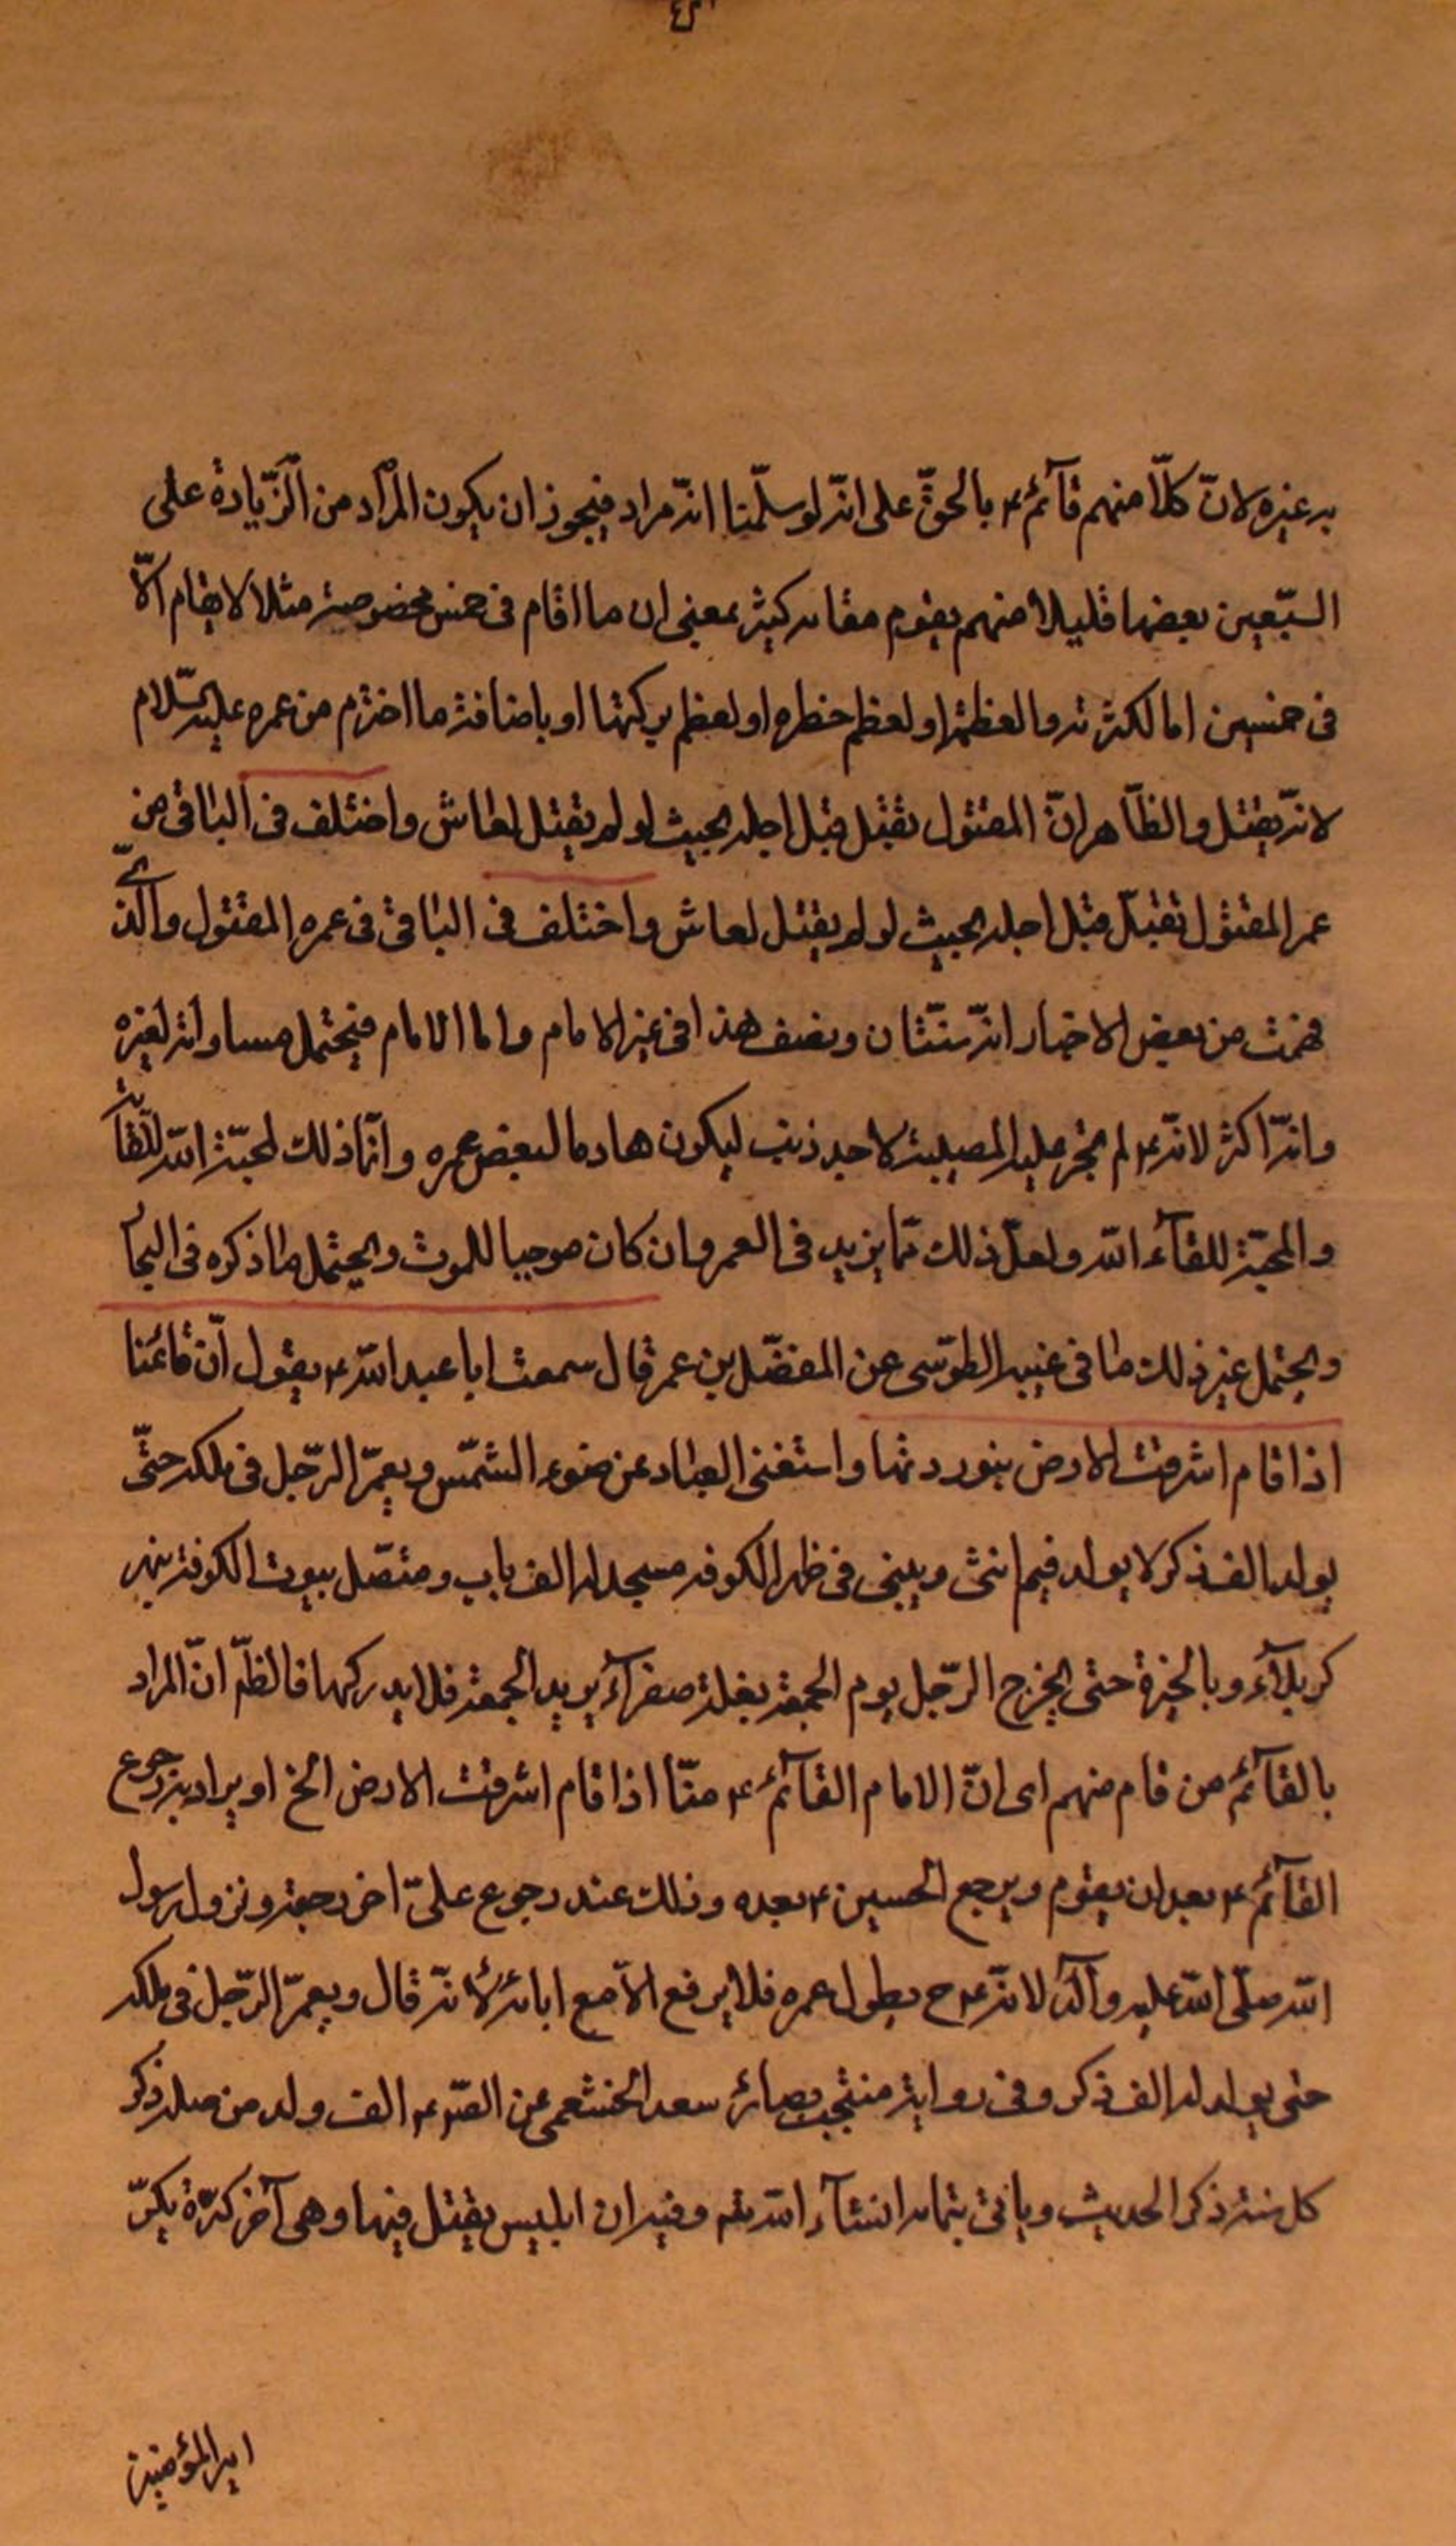 به غيره لانّ كلّا منهم قآئم ع بالحقّ على انّه لو سلّمنا انّه مراد فيجوز ان يكون المراد من الزّيادة على
السّبعين بعضها قليلا منهم يقوم مقامه كثير بمعنى ان ما اقام فى خمس مخصوصيته مثلا لا يقام الّا
فى خمسين اما لكثرته والعظمة او لعظم خطره او لعظم بركتها او باضافة ما اخترم من عمره عليه السّلام
لانّه يقتل والظّاهر انّ المقتول يقتل قبل اجله بحيث لو لم يقتل لعاش واختلف فى الباقى من
عمر المقتول تقتل قبل اجله بحيث لو لم يقتل لعاش واختلف فى الباقى فى عمره المقتول والّذى
فهمت من بعض الاخبار انّه سنتان ونصف هذا فى غير الامام واما الامام فيحتمل مساواته لغيره
وانّه اكثر لانّه ع لم تجر عليه المصيبة لاجل ذنب ليكون هادما لبعض عمره وانّما ذلك لمحبّة اللّه للقآئه
والمحبّة للقآء اللّه ولعلّ ذلك ممّا يزيد فى العمر وان كان موجبا للموت ويحتمل ما ذكره فى البحار
ويحتمل غير ذلك ما فى غيبه الطوّسى عن المفضّل بن عمر قال سمعت ابا عبد اللّه ع يقول انّ قائمنا
اذا قام اشرقت الارض بنور ربّها واستغنى العباد عن ضوء الشّمس ويعمّر الرّجل فى ملكه حتّى
يولد له الف ذكر لا يولد فيهم انثى ويبنى فى ظهر الكوفه مسجد له الف باب ومتّصل بيوت الكوفة بنهر
كربلآء وبالحيرة حتى يخرج الرّجل يوم الجمعة ببغلة صفرآء يريد الجمعة فلا يدركها فالظّم انّ المراد
بالقآئم من قام منهم اى انّ الامام القآئم ع منّا اذا قام اشرقت الارض الخ او يراد به رجوع
القآئم ع بعد ان يقوم ويرجع الحسين ع بعده وذلك عند رجوع علىّ اخر رجعة ونزول رسول
اللّه صلّى اللّه عليه وآله لانّه ع ح يطول عمره فلا يرفع الّا مع ابائه لانّه قال ويعمّر الرّجل فى ملكه
حتى يولد له الف ذكر وفى رواية منتجب بصائر سعد الخثعمى عن الصّ ع الف ولد من صلبه ذكر
كل سنة ذكر الحديث وياتى بتمامه انشآء اللّه تعم وفيه ان ابليس يقتل فيها وهى آخر كرّة يكرّ
امير المؤمنين